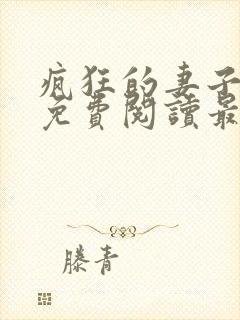 瘋狂的妻子
免費閱讀最
滕青